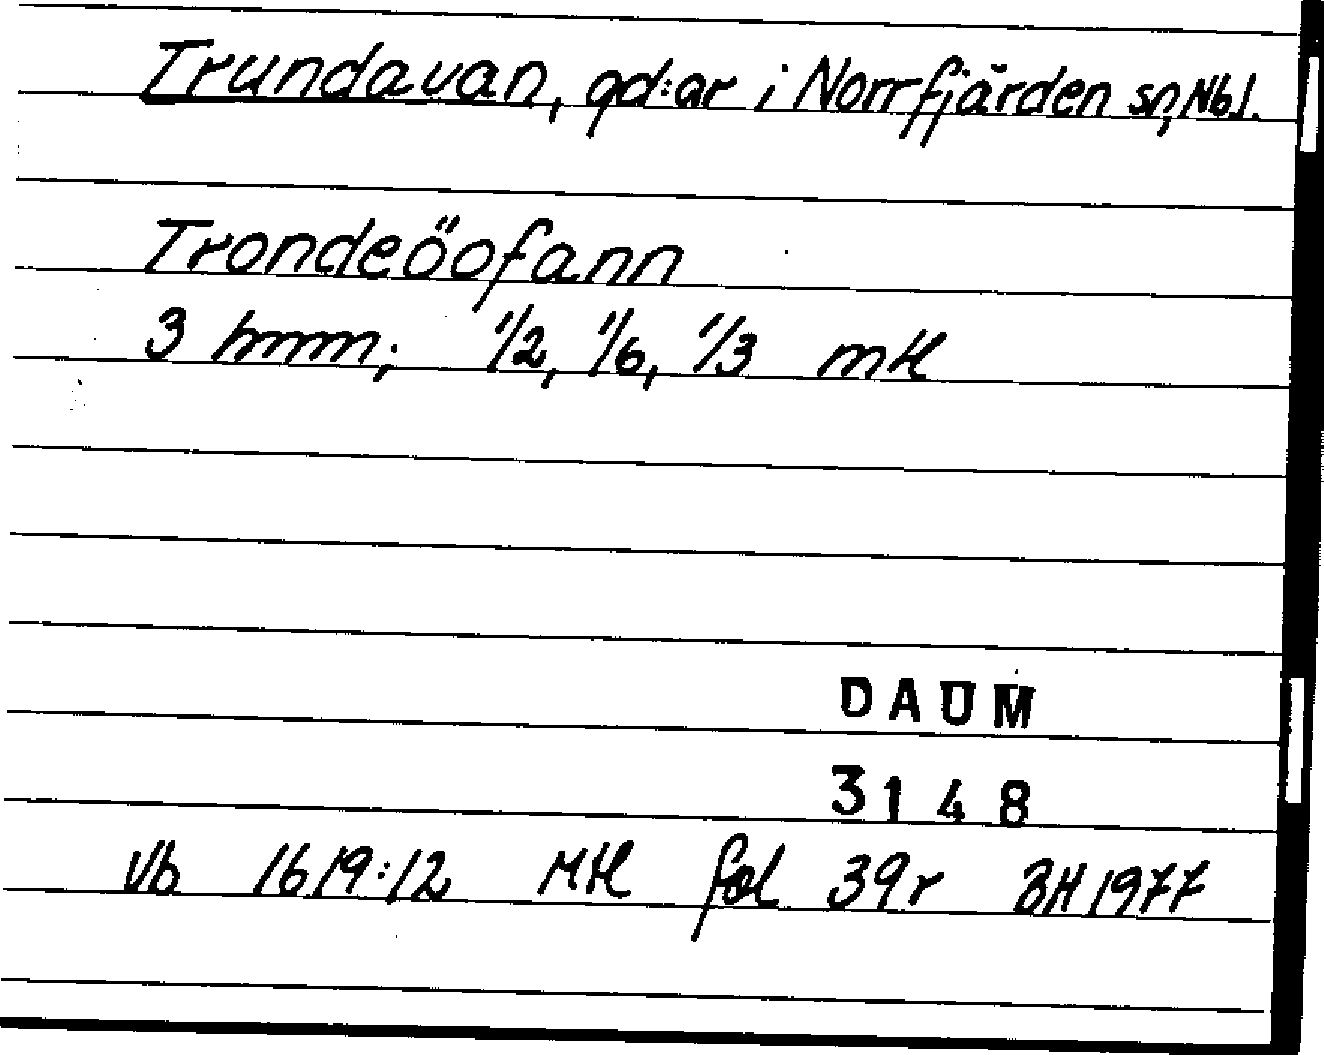 Trundavan, gd:ar i Norrfjärden sn, Nbl.
Trondeöofann
3 hmm; 1/2, 1/6, 1/3 mtl
DAUM
3148
Vb 1619:12 Mtl fol 39r BH 1977